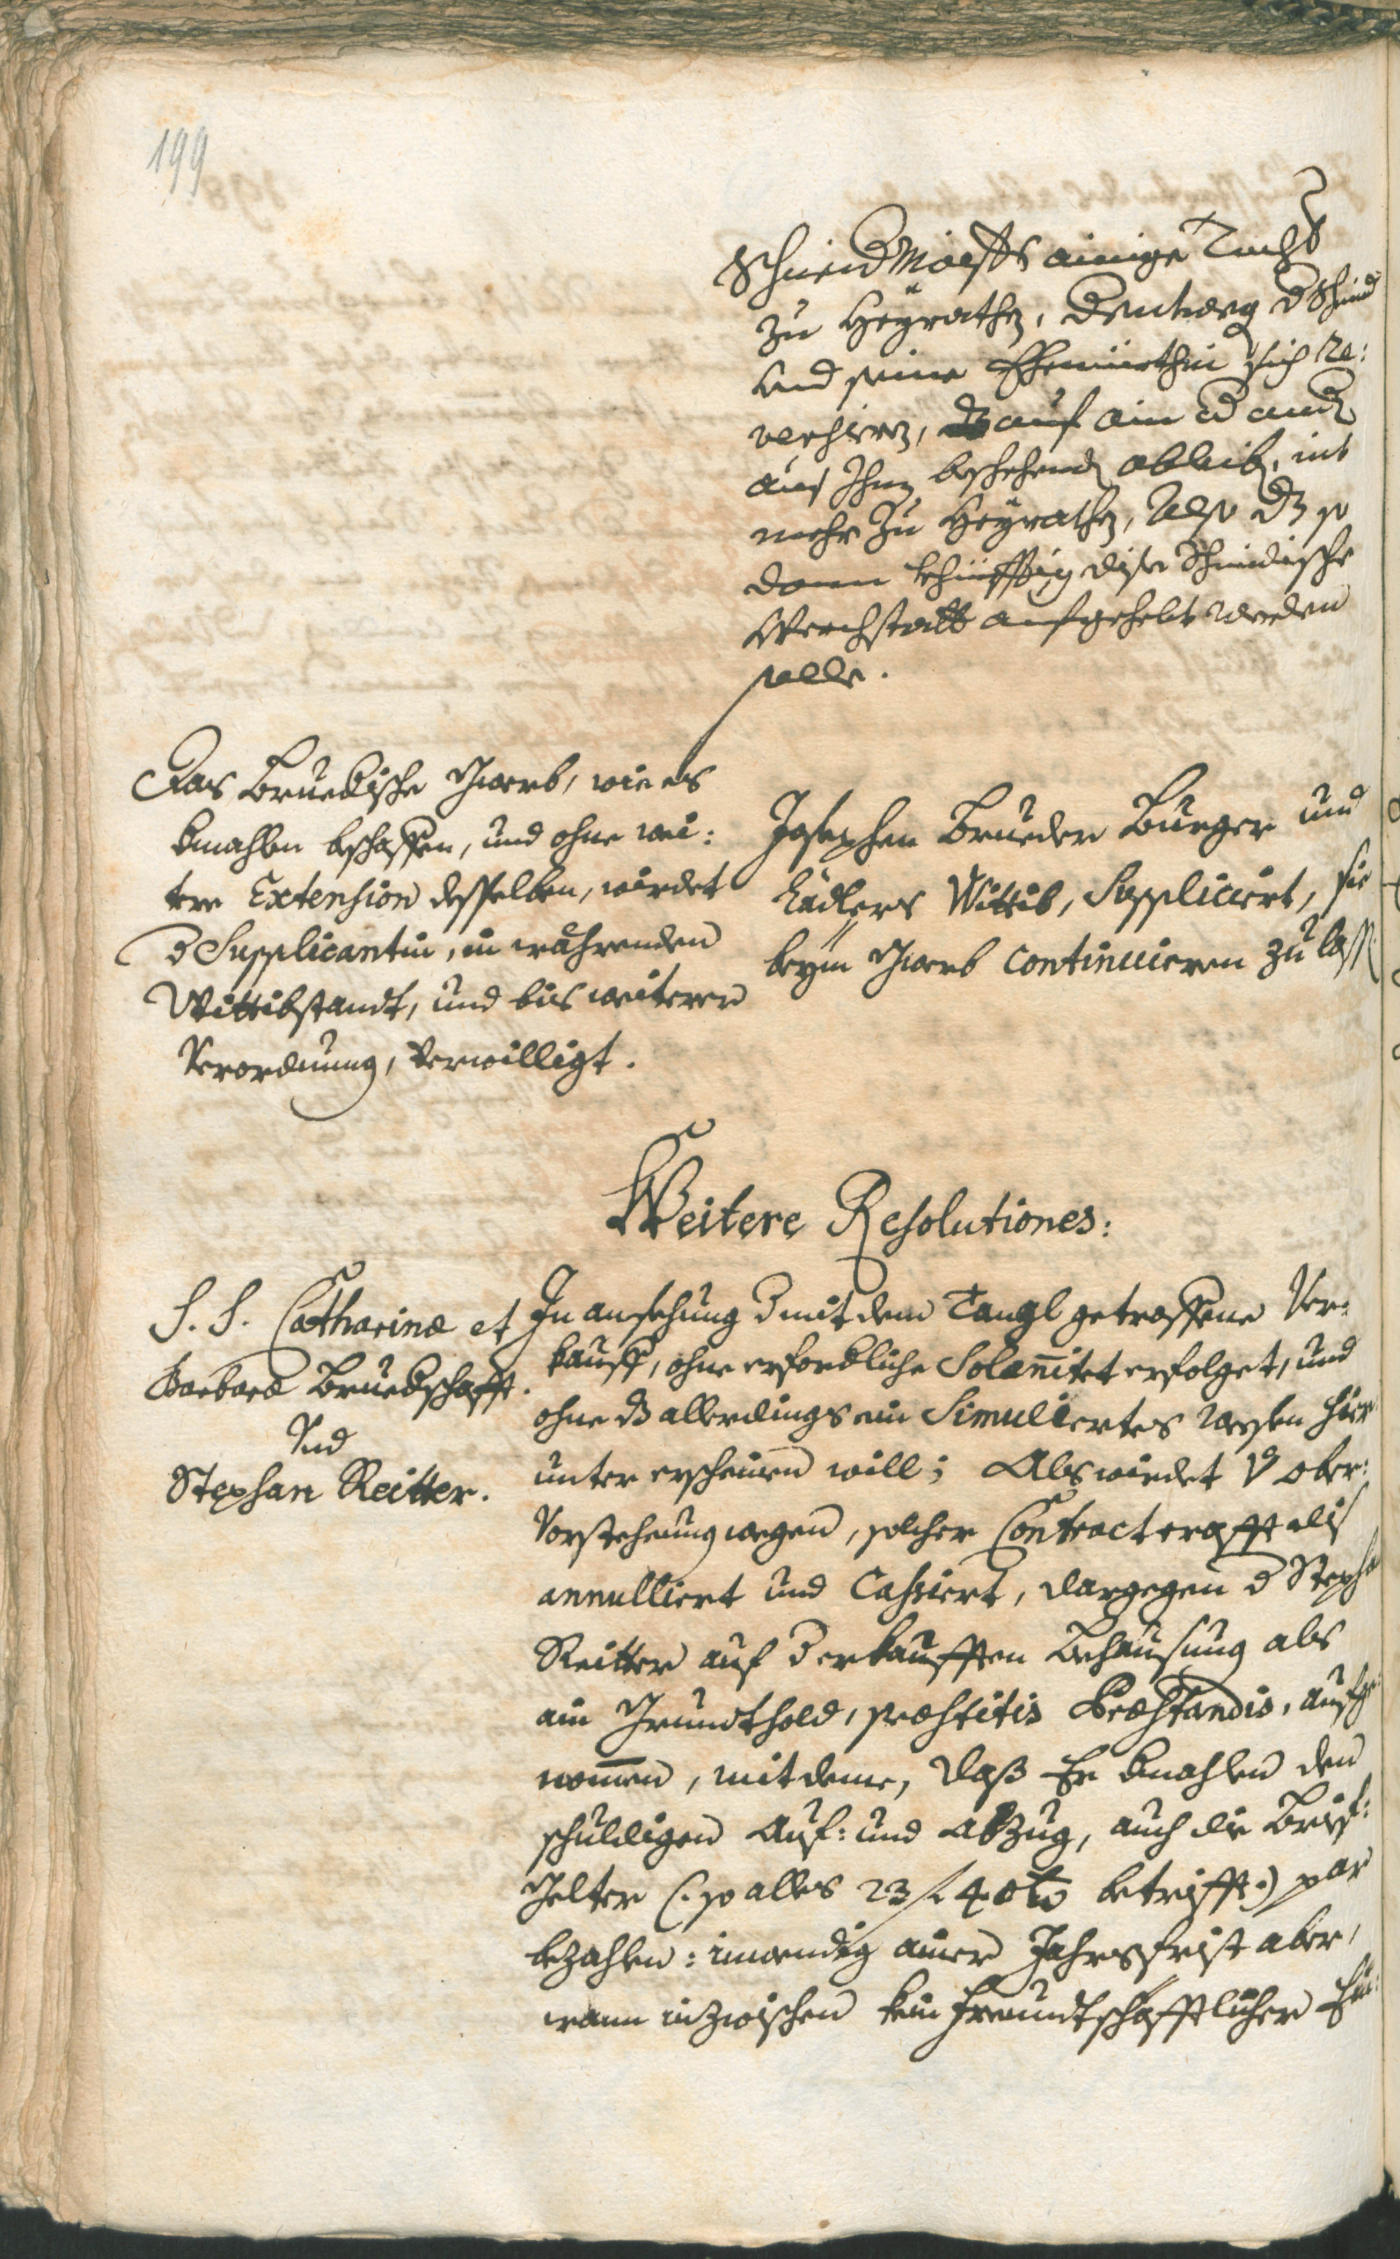 199
Schmid Maisters ainige Tochter
zu Heyrathen, dentweg d Schmid
und seine Ehewürthin sich re:
versiern, auf ain d and
aus Ihnen beschehendes ableiben, nit
mehr zu Heyrathen, Also dz so
dann khünfftig dise Schmidische
Werchstatt aufgehebt werden
solle.
Das Bruedische Gwerb, wie es
dmahlen beschaffen, und ohne wei:
tere Extension desselben, würdet
d Supplicantin, in währenden
Wittibstandt, und bis weiterer
Verordnung, verwilligt.
Josephen Brueder Burger und
Lädlers Wittib, Suppliciert, sie
beym Gwerb continuieren zu lass
Weitere Resolutiones:
S. S. Catharinæ et
Barbaræ Bruedschafft.
Und
Stephan Reitter.
In ansehung d mit dem Tangl getroffene Ver:
kauff, ohne erforderliche Solennitet erfolget, und
ohne dz allerdings ein Simuliertes Wesen hier
unter erscheinen will; Als wirdet v ober:
Vorstehung wegen, solcher Contract crafft diß
annulliert und Cassiert, dargegen d Stephan
Reitter auf d erkaufften Behausung als
ain Grundthold, præstitis Præstandis, aufge
nommen, mit deme, daß Er dmahlen den
schuldigen Auf: und Abzug, auch die Brief:
Gelter (: so alles 23 f 40 kr betrifft :) par
bezahlen: inwendig ainer Jahrsfrist aber,
wann inzwischen kein Freundtschafftlicher Ein: